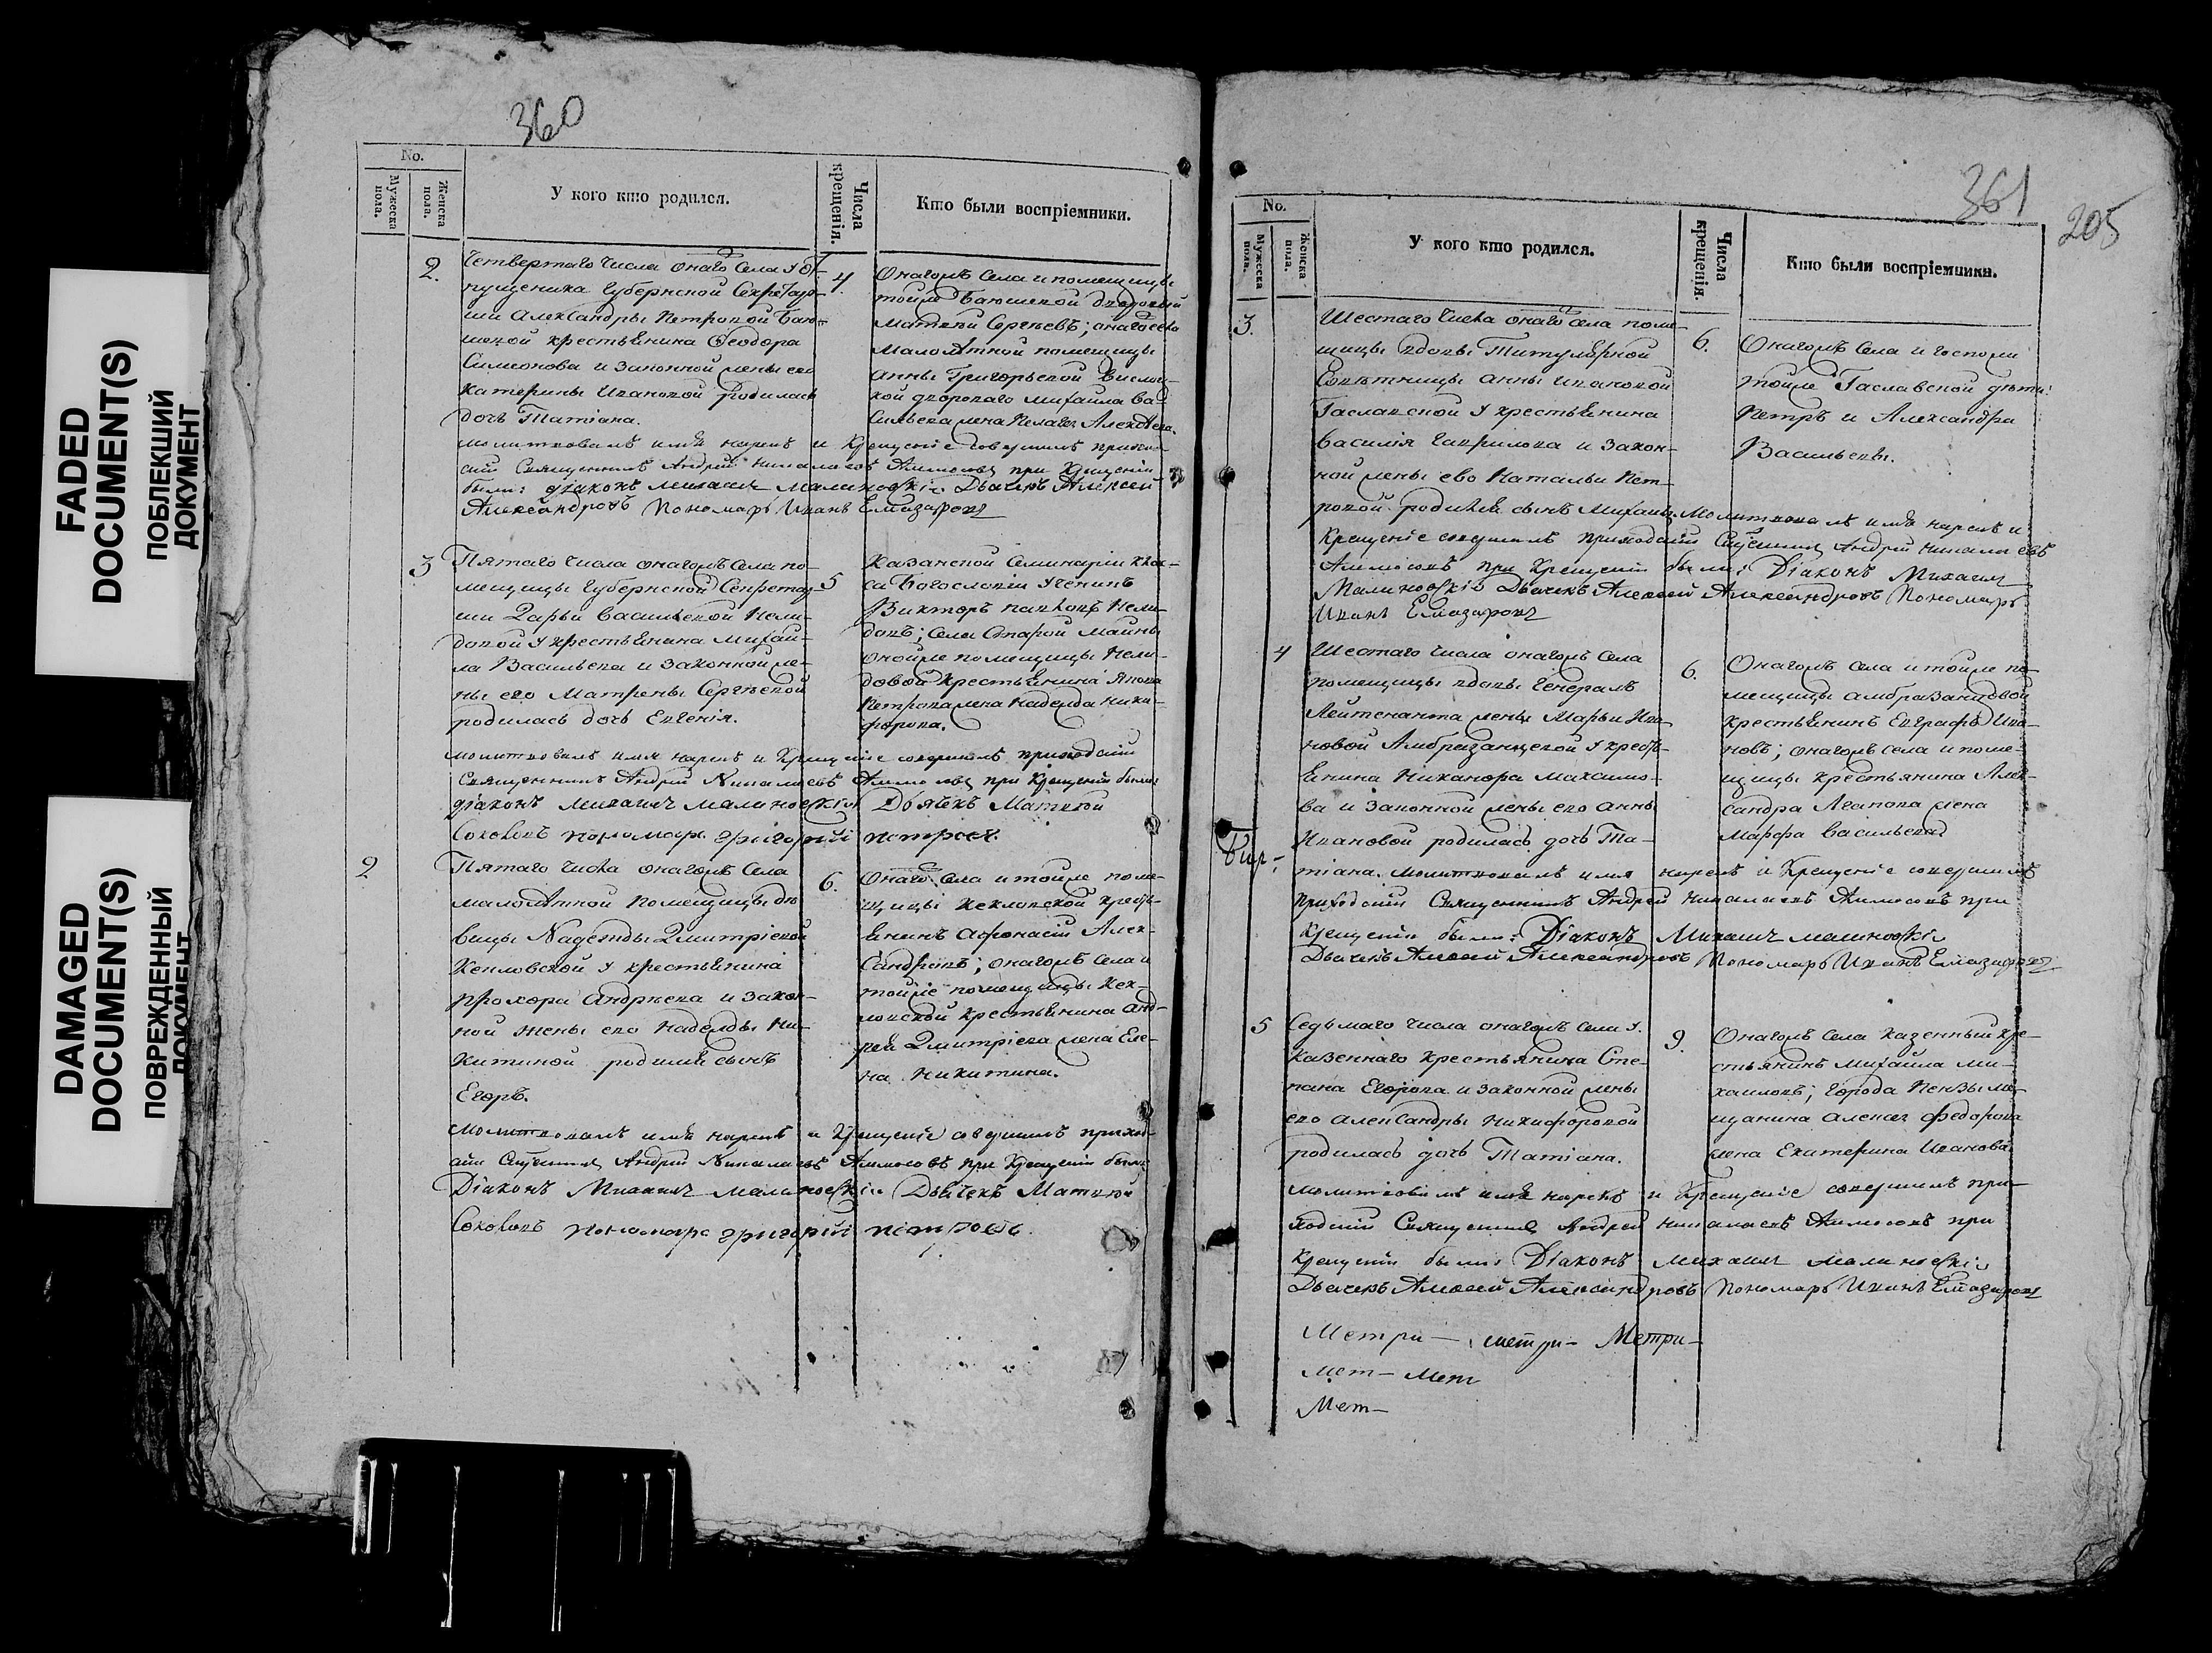 FADED
DOCUMENT(S)
ПОБЛЕКШИЙ
ДОКУМЕНТ
DAMAGED
DOCUMENT(S)
ПОВРЕЖДЕННЫЙ
ДОКУМЕНТ
360
No.
Мужеска пола.
Женска пола.
У кого кто родился.
Числа крещенія.
Кто были воспріемники.
2. Четвертаго числа онаго села у
пущеника Губернской Секретар-
ши Александры Петровой
крестьянина Феодора
Симионова и законной жены его
Катерины Ивановой родилась
дочь Татіана.
4.
Онагожъ села и помещицы
тойже дворовый
Матвей Сергеевъ; онаго села
малолѣтной помещицы
Анны Григорьевой
двороваго Михаила Ва-
сильева жена Пелагея Алексѣева.
молитвовалъ имя нарекъ и крещеніе совершилъ приход-
скій Священникъ Андрей Николаевъ при крещеніи
были: діаконъ Михаилъ Малиновскій Дьячекъ Алексей
Александровъ Пономарь Иванъ Елиазаровъ
3 Пятаго числа онагожъ села по-
мещицы Губернской Секретар-
ши Дарьи Васильевой Нели-
довой у крестьянина Михай-
ла Васильева и законной же-
ны его Матрены Сергѣевой
родилась дочь Евгенія.
5
Казанской Семинаріи клас-
са Богословіи ученикъ
Викторъ Нели-
довъ; села Старой Майны
онойже помещицы Нели-
довой крестьянина Якова
Петрова жена Надежда Ники-
форова.
молитвовалъ имя нарекъ и крещеніе совершилъ приходскій
Священникъ Андрей Николаевъ при крещеніи были
діаконъ Михаилъ Малиновскій Дьячекъ Матвей
Соколовъ пономарь григорій петровъ.
2. Пятаго числа онагожъ села
малолѣтной помещицы дѣ
вицы Надежды Дмитріевой
у крестьянина
Прохора Андрѣева и закон-
ной жены его Надежды Ни-
китиной родился сынъ
Егоръ.
6.
Онаго села и тойже поме-
щицы крестъ-
янинъ Афонасій Алек-
сандровъ; онагожъ села и
тойже помещицы
крестьянина Анд-
рея Дмитріева жена Еле-
на Никитина.
молитвовалъ имя нарекъ и крещеніе совершилъ приход-
скій Священникъ Андрей Николаевъ при крещеніи были
Діаконъ Михаилъ Малиновскій Дьячекъ Матвей
Соколовъ пономарь григорій петровъ.
361
205
No.
Мужеска пола.
Женска пола.
У кого кто родился.
Числа крещенія.
Кто были воспріемники.
3. Шестаго числа онаго села поме-
щицы вдовы Титулярной
Совѣтницы Анны Ивановой
Гаславской у крестьянина
Василія Гаврилова и закон-
ной жены ево Натальи Пет-
ровой родился сынъ Михаилъ.
6.
Онагожъ села и госпожи
тойже Гаславской дѣти:
Петръ и Александра
Васильевы.
Молитвовалъ имя нарекъ и
крещеніе совершилъ приходскій Священникъ Андрей Николаевъ
при крещеніи были: Діаконъ Михаилъ
Малиновскій Дьячекъ Алексей Александровъ Пономарь
Иванъ Елиазаровъ
4 Шестаго числа онагожъ села
помещицы вдовы Генералъ
Лейтенанта жены Марьи Ива-
новой Амбразанцевой у кресть-
янина Никанора Максимо-
ва и законной жены его Анны
Ивановой родилась дочь Та-
тіана.
6.
Онагожъ села и тойже по-
мещицы Амбразанцовой
крестьянинъ Евграфъ Ива-
новъ; онагожъ села и поме-
щицы крестьянина Алек-
сандра Агапова жена
Марфа Васильева
молитвовалъ имя нарекъ и крещеніе совершилъ
приходскій Священникъ Андрей Николаевъ при
крещеніи были: Діаконъ Михаилъ Малиновскій
Дьячекъ Алексей Александровъ Пономарь Иванъ Елиазаровъ
5 Седьмаго числа онагожъ села у
казеннаго крестьянина Сте-
пана Егорова и законной жены
его Александры Никифоровой
родилась дочь Татіана.
9.
Онагожъ села казенный кре-
стьянинъ Михаила Ми-
хаиловъ; города Пензы ме-
щанина Алексея Федорова
жена Екатерина Иванова
молитвовалъ имя нарекъ и крещеніе совершилъ при-
ходскій Священникъ Андрей Николаевъ при
крещеніи были: Діаконъ Михаилъ Малиновскій
Дьячекъ Алексей Александровъ Пономарь Иванъ Елиазаровъ
Метри- метри- Метри-
мет- мет
Мет-